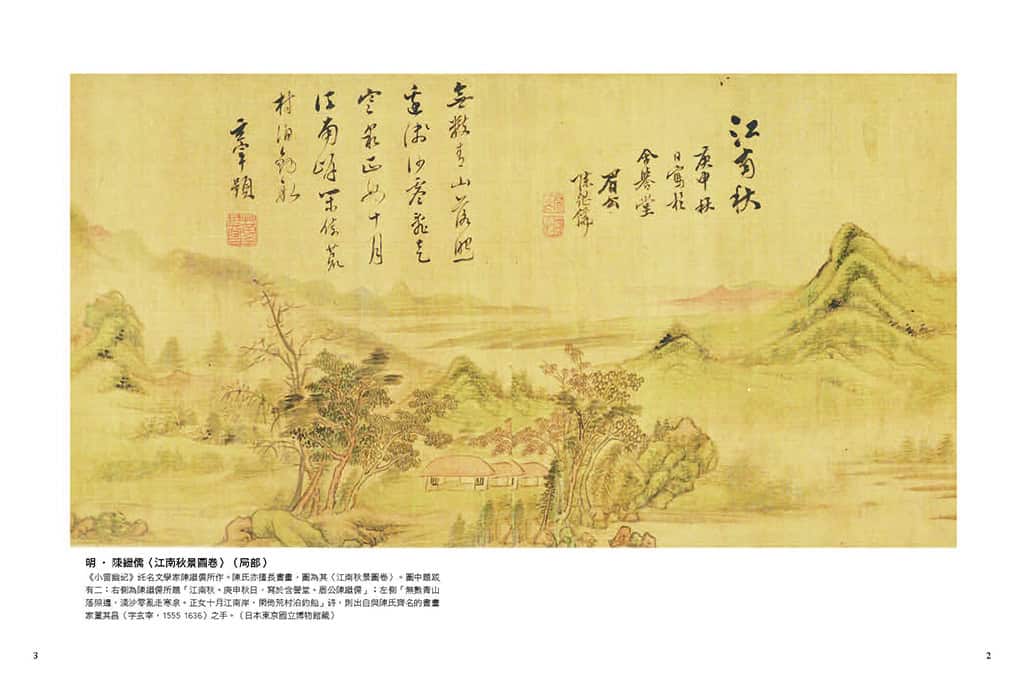 江南秋
庚申秋
日寫於
含譽堂
眉公
陳繼儒
無數青山落照
邊淺沙零亂走
寒泉正如十月
江南岸閑倚荒
村泊釣船
玄宰題
明 · 陳繼儒〈江南秋景圖卷〉（局部）
《小窗幽紀》託名文學家陳繼儒所作。陳氏亦擅長書畫，圖為其〈江南秋景圖卷〉。圖中題跋
有二：右側為陳繼儒所題「江南秋。庚申秋日，寫於含譽堂。眉公陳繼儒」；左側「無數青山
落照邊，淺沙零亂走寒泉。正女十月江南岸，閑倚荒村泊釣船」詩，則出自與陳氏齊名的書畫
家董其昌（字玄宰，1555 1636）之手。（日本東京國立博物館藏）
3
2